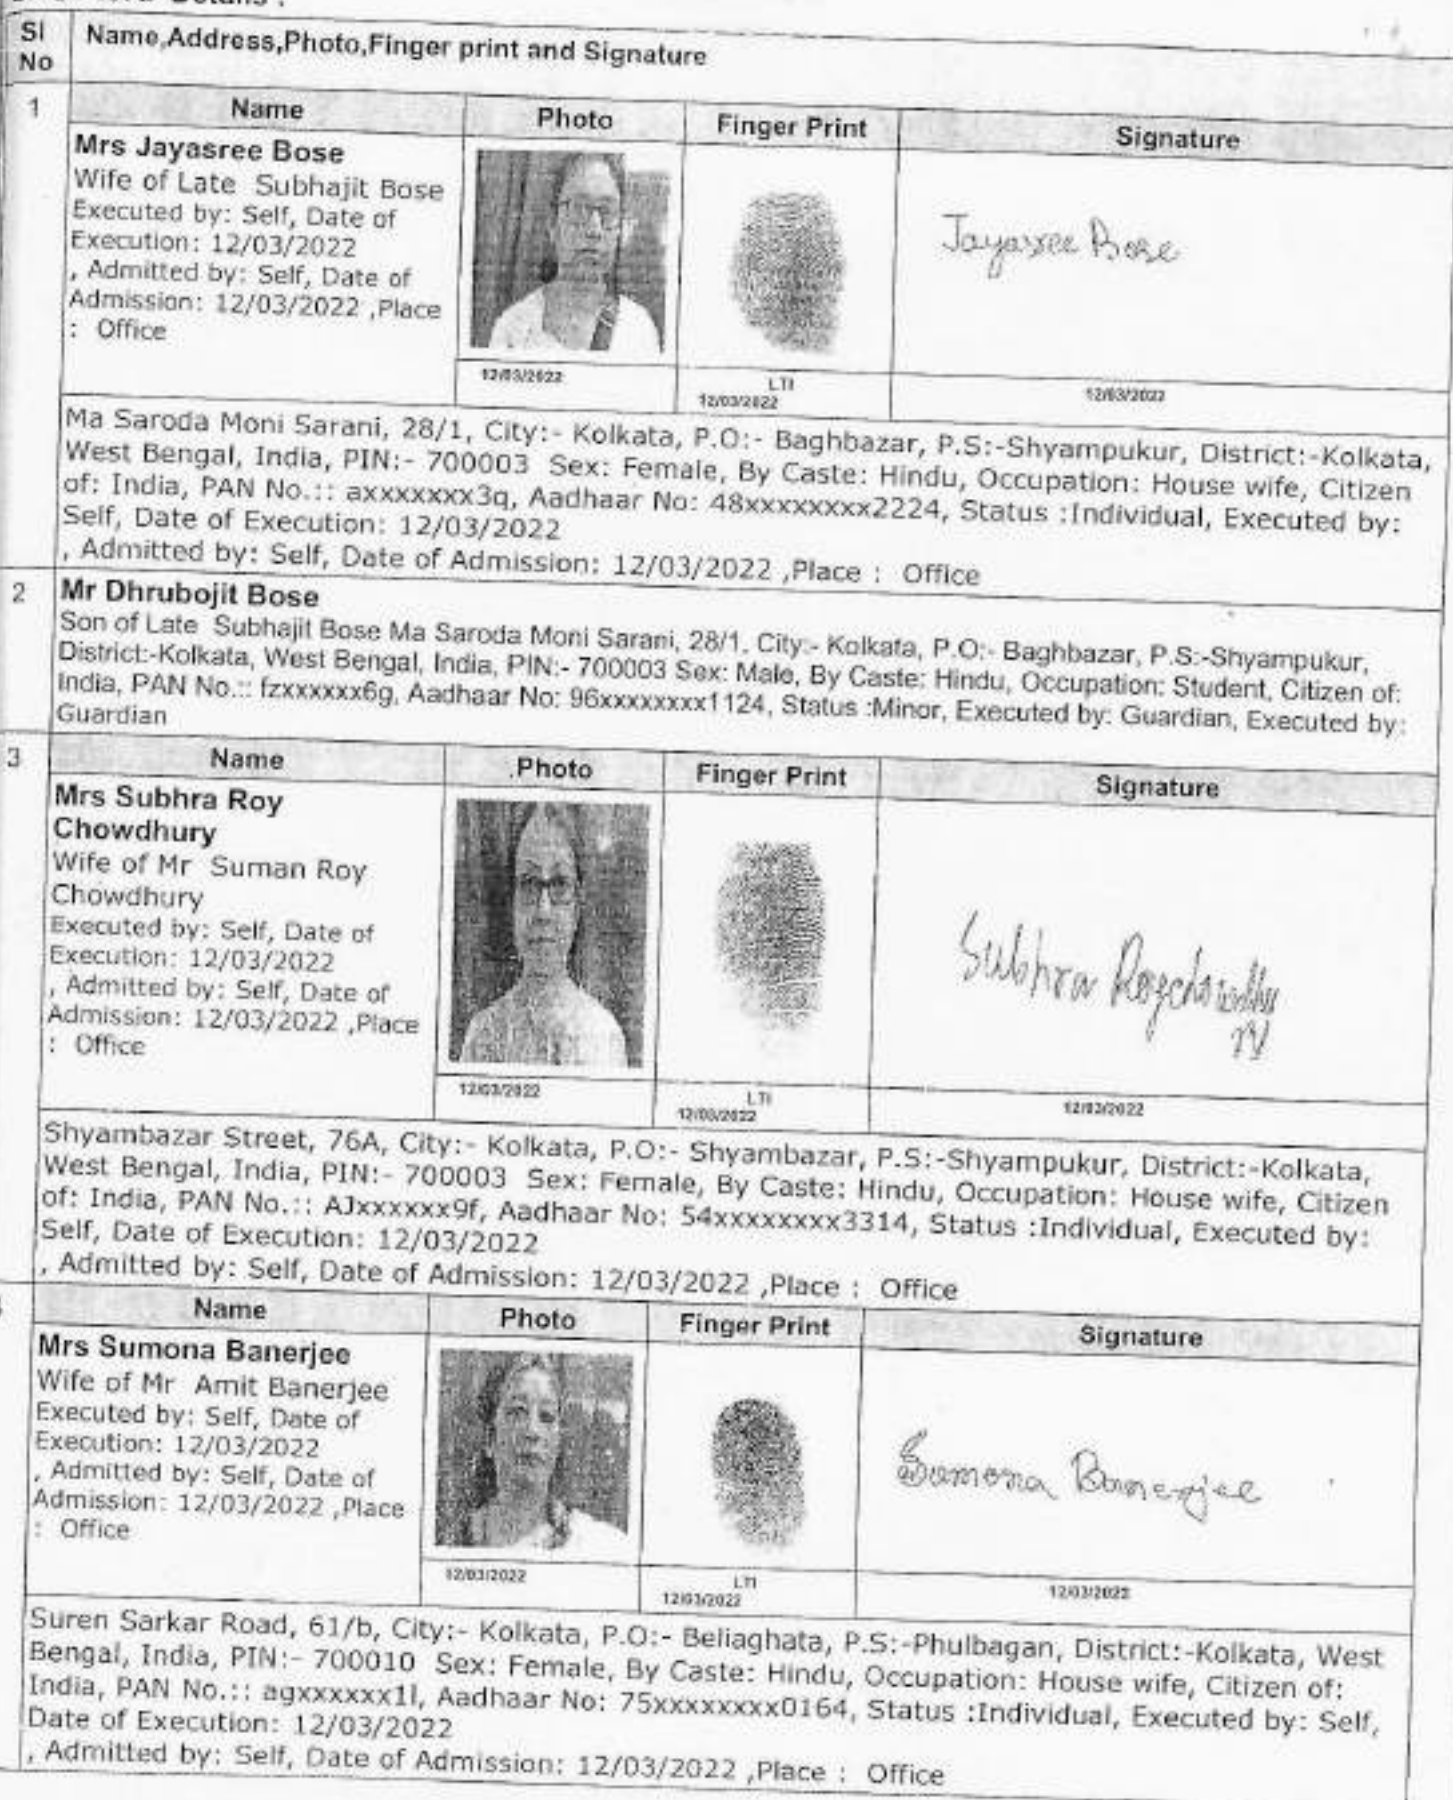 Details :
Sl No
Name,Address,Photo,Finger print and Signature
1
Name Photo Finger Print Signature
Mrs Jayasree Bose
Wife of Late Subhajit Bose
Executed by: Self, Date of
Execution: 12/03/2022
, Admitted by: Self, Date of
Admission: 12/03/2022 ,Place
: Office
Jayasree Bose
12/03/2022
LTI
12/03/2022
12/03/2022
Ma Saroda Moni Sarani, 28/1, City:- Kolkata, P.O:- Baghbazar, P.S:-Shyampukur, District:-Kolkata,
West Bengal, India, PIN:- 700003 Sex: Female, By Caste: Hindu, Occupation: House wife, Citizen
of: India, PAN No.:: axxxxxxx3q, Aadhaar No: 48xxxxxxxx2224, Status :Individual, Executed by:
Self, Date of Execution: 12/03/2022
, Admitted by: Self, Date of Admission: 12/03/2022 ,Place : Office
2
Mr Dhrubojit Bose
Son of Late Subhajit Bose Ma Saroda Moni Sarani, 28/1, City:- Kolkata, P.O:- Baghbazar, P.S:-Shyampukur,
District:-Kolkata, West Bengal, India, PIN:- 700003 Sex: Male, By Caste: Hindu, Occupation: Student, Citizen of:
India, PAN No.:: fzxxxxxx6g, Aadhaar No: 96xxxxxxxx1124, Status :Minor, Executed by: Guardian, Executed by:
Guardian
3
Name .Photo Finger Print Signature
Mrs Subhra Roy
Chowdhury
Wife of Mr Suman Roy
Chowdhury
Executed by: Self, Date of
Execution: 12/03/2022
, Admitted by: Self, Date of
Admission: 12/03/2022 ,Place
: Office
Subhra Roychowdhu
ry
12/03/2022
LTI
12/03/2022
12/03/2022
Shyambazar Street, 76A, City:- Kolkata, P.O:- Shyambazar, P.S:-Shyampukur, District:-Kolkata,
West Bengal, India, PIN:- 700003 Sex: Female, By Caste: Hindu, Occupation: House wife, Citizen
of: India, PAN No.:: AJxxxxxx9f, Aadhaar No: 54xxxxxxxx3314, Status :Individual, Executed by:
Self, Date of Execution: 12/03/2022
, Admitted by: Self, Date of Admission: 12/03/2022 ,Place : Office
Name Photo Finger Print Signature
Mrs Sumona Banerjee
Wife of Mr Amit Banerjee
Executed by: Self, Date of
Execution: 12/03/2022
, Admitted by: Self, Date of
Admission: 12/03/2022 ,Place
: Office
Sumona Banerjee
12/03/2022
LTI
12/03/2022
12/03/2022
Suren Sarkar Road, 61/b, City:- Kolkata, P.O:- Beliaghata, P.S:-Phulbagan, District:-Kolkata, West
Bengal, India, PIN:- 700010 Sex: Female, By Caste: Hindu, Occupation: House wife, Citizen of:
India, PAN No.:: agxxxxxx1l, Aadhaar No: 75xxxxxxxx0164, Status :Individual, Executed by: Self,
Date of Execution: 12/03/2022
, Admitted by: Self, Date of Admission: 12/03/2022 ,Place : Office